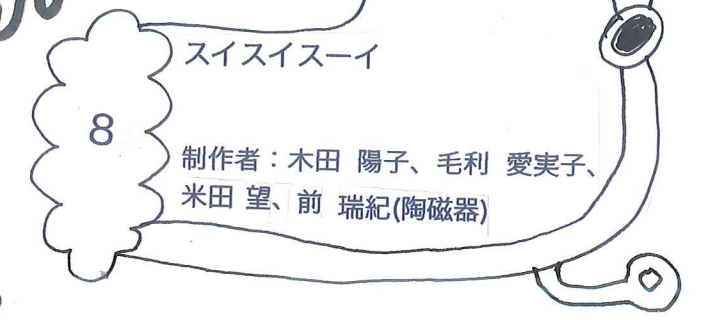 スイスイスーイ
8
制作者：木田 陽子、毛利 愛実子、
米田 望、前 瑞紀(陶磁器)